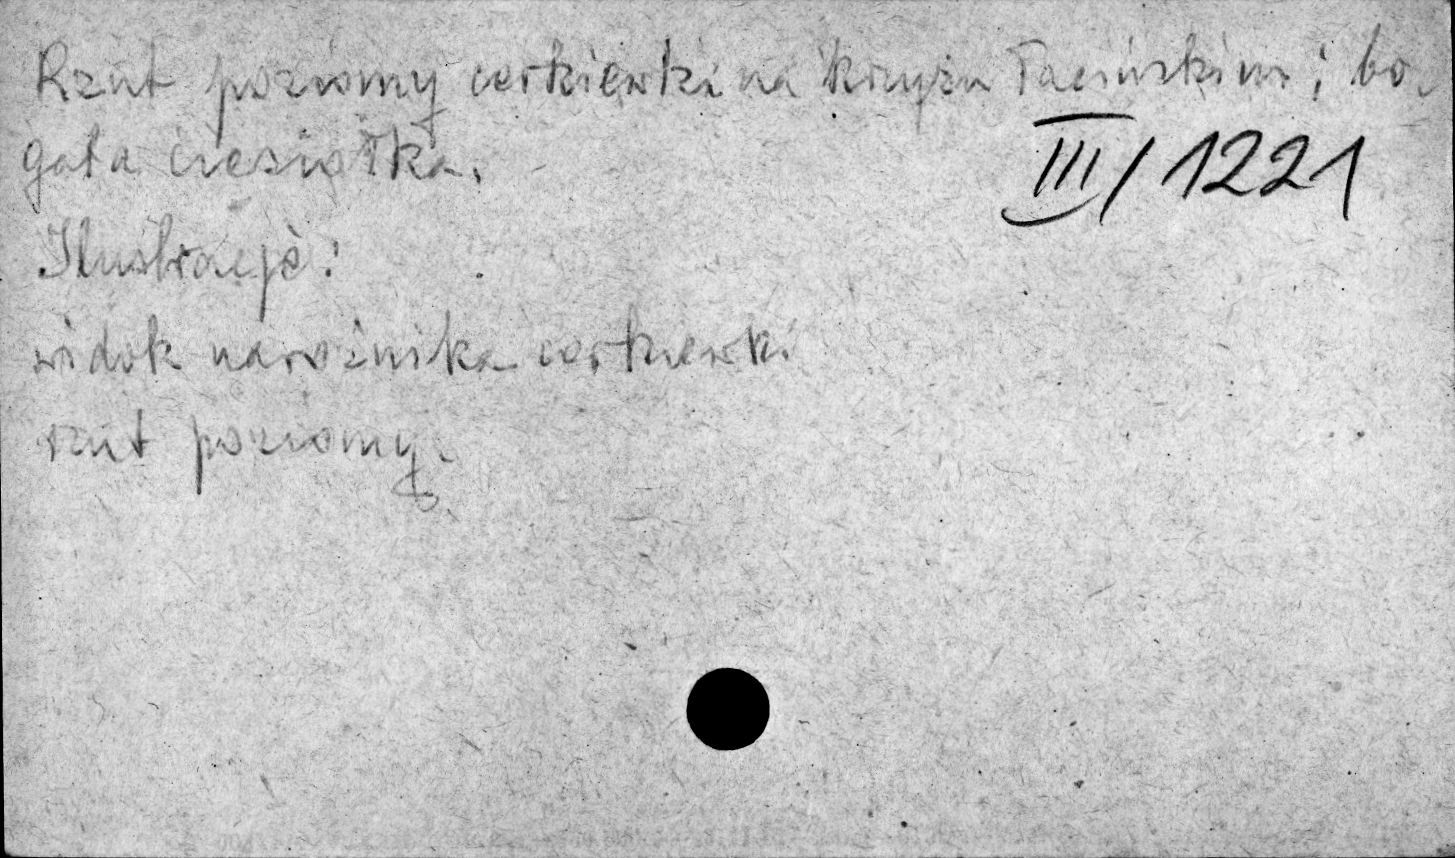 Rzut poziomy cerkiewki na krzyżu łacińskim; bo-
gata ciesiołka.
III/1221
Ilustracje:
widok narożnika cerkiewki
rzut poziomy.